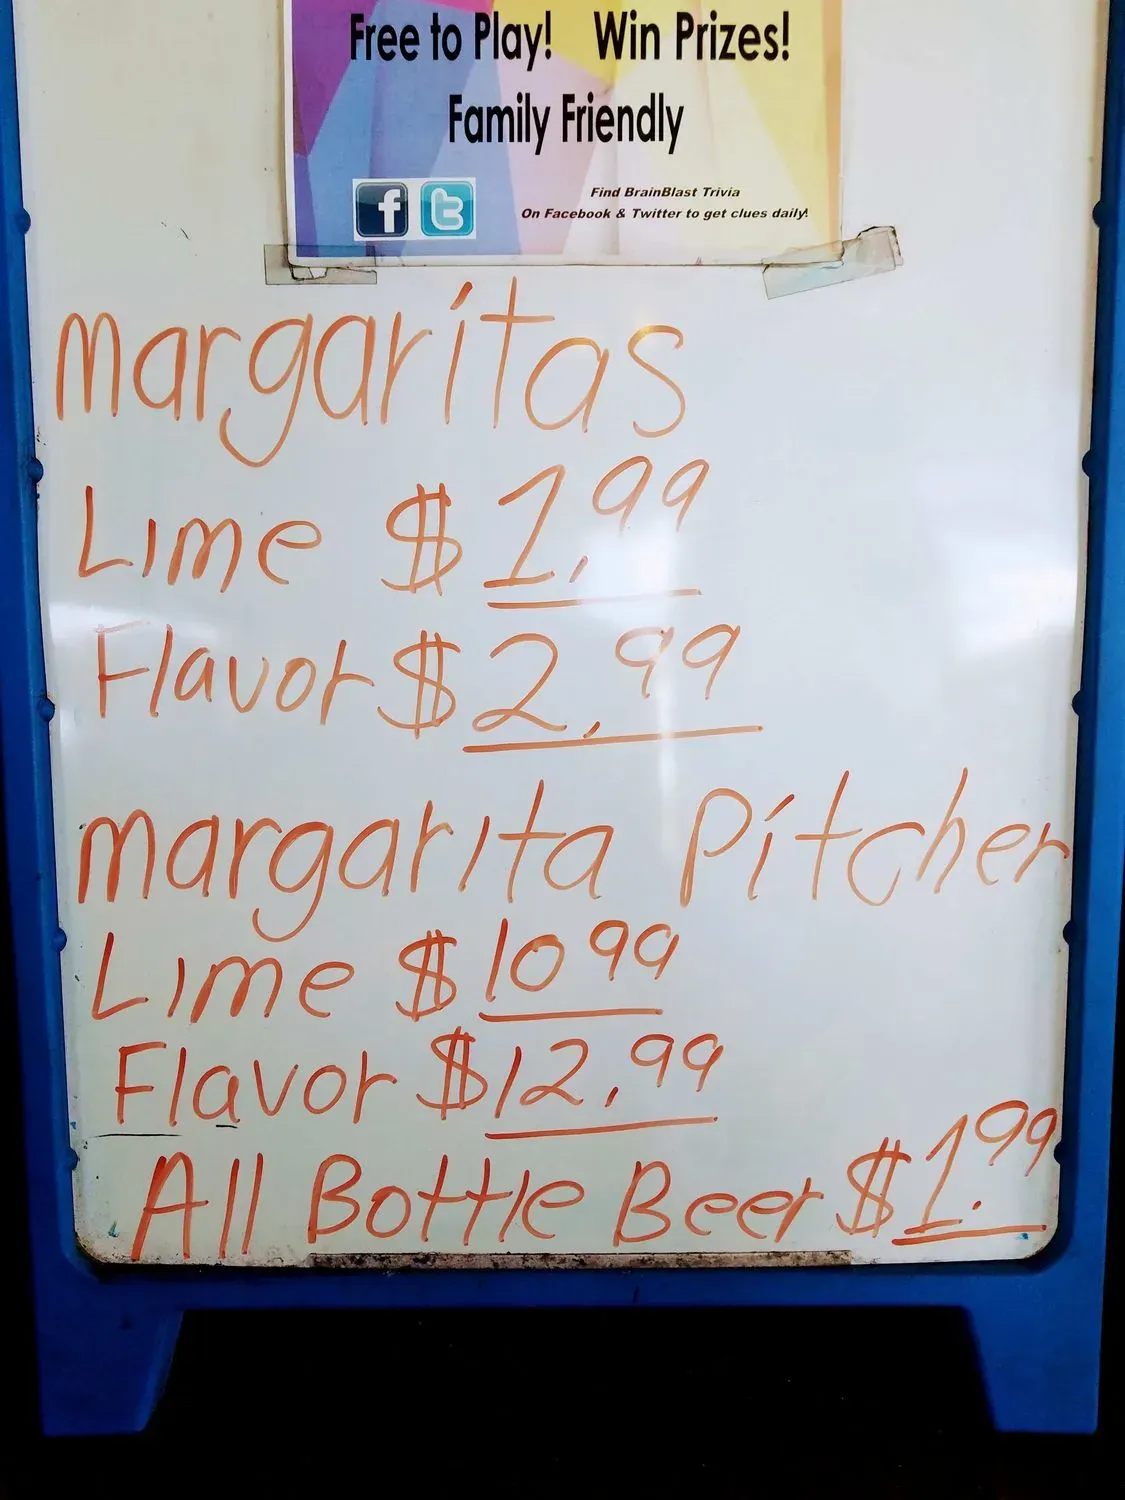 Free to Play! Win Prizes!
Family Friendly
f t
Find BrainBlast Trivia
On Facebook & Twitter to get clues daily!
margaritas
Lime $1.99
Flavor $2.99
margarita Pitcher
Lime $1099
Flavor $12.99
All Bottle Beer $1.99